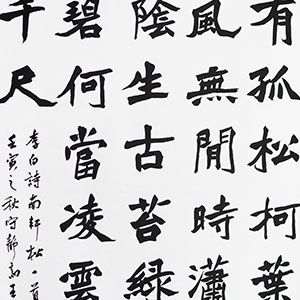 有孤松柯葉
風無閒時瀟
陰生古苔緑
碧何當凌雲
千尺
李白詩南軒松一首
壬寅之秋守靜